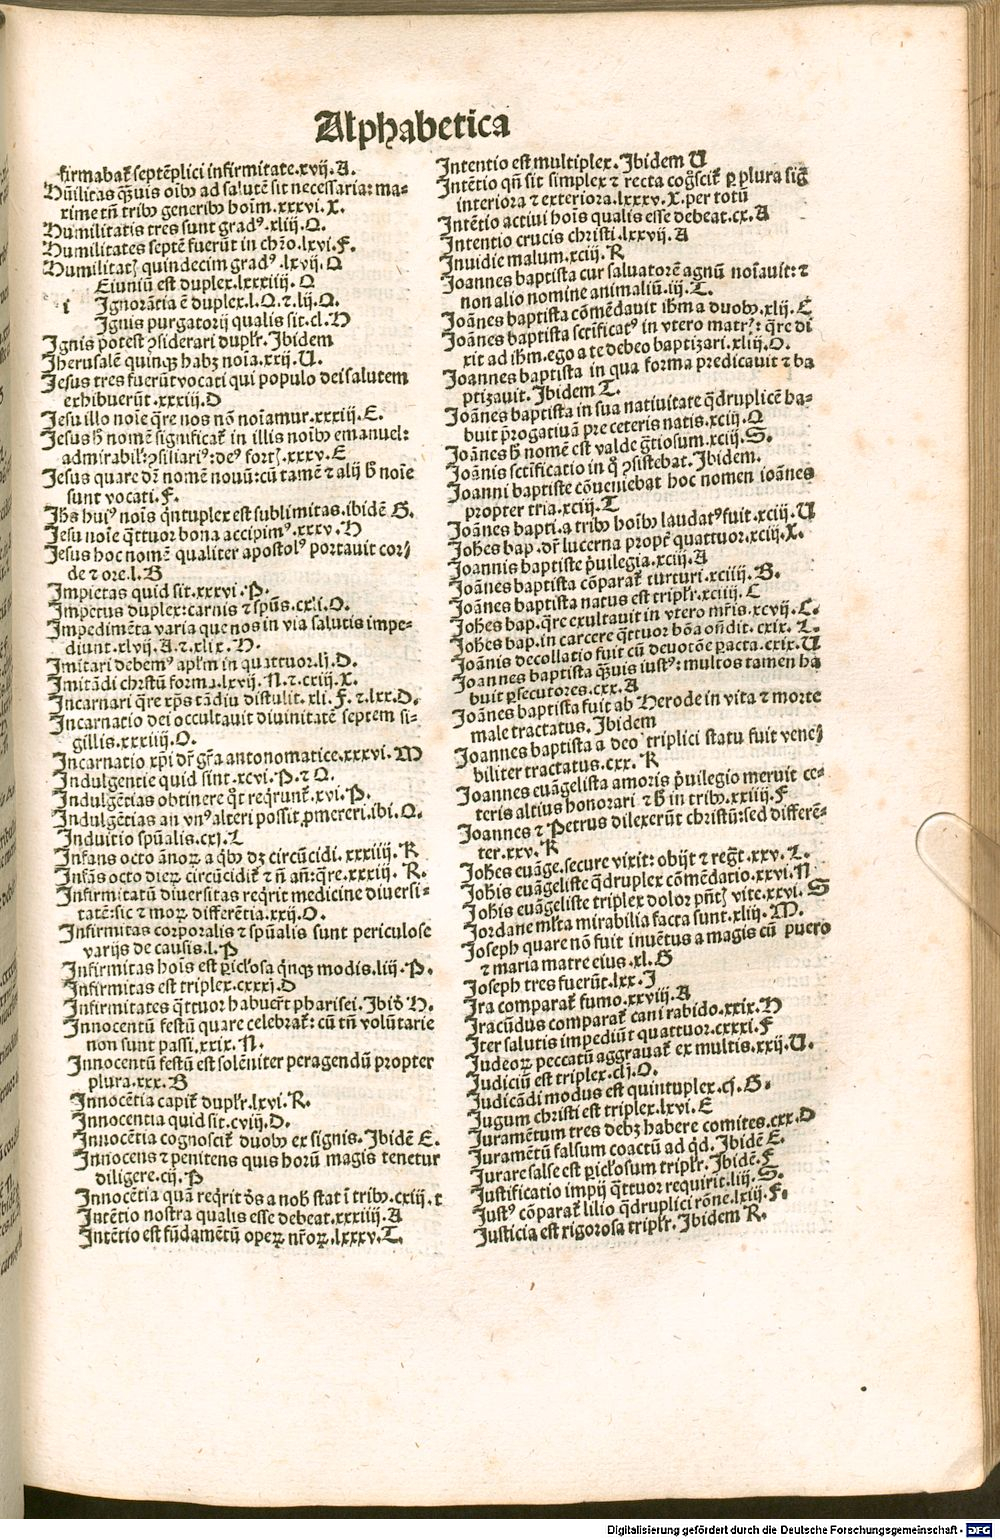 Alphabetica
firmabat᷑ septēplici infirmitate.xvij.A.
Hūilitas q̄uis oībꝰ ad salutē sit necessaria: ma-
xime tn̄ tribꝰ generibꝰ hoīm.xxxvi.X.
Humilitatis tres sunt gradꝰ.xliij.Q.
Humilitates septē fuerūt in chr̄o.lxvi.F.
Humilitatꝭ quindecim gradꝰ.lxvij.Q
Eiuniū est duplex.lxxxiiij.O
i Ignorātia ē duplex.l.Q.⁊.lij.Q.
Ignis purgatorij qualis sit.cl.H
Ignis potest ꝯsiderari duplr̄. Ibidem
Iherusalē quinqꝫ habꝫ noīa.xxij.U.
Jesus tres fuerūt vocati qui populo dei salutem
exhibuerūt.xxxiij.D
Jesu illo noīe q̄re nos nō noīamur.xxxiij.E.
Jesus h̄ nomē significat᷑ in illis noībꝰ emanuel:
admirabil̓:ꝯsiliariꝰ:deꝰ fortꝭ.xxxv.E
Jesus quare dr̄ nomē nouū:cū tamē ⁊ alij h̄ noīe
sunt vocati.F.
Jh̄s huiꝰ noīs q̄ntuplex est sublimitas.ibidē G.
Jesu noīe q̄ttuor bona accipimꝰ.xxxv.H
Jesus hoc nomē qualiter apostolꝰ portauit cor/
de ⁊ ore.l.B
Impietas quid sit.xxxvi.P.
Impetus duplex:carnis ⁊ spūs.cxli.O.
Impedimēta varia que nos in via salutis impe-
diunt.xlvij.A.⁊.xlix.H.
Imitari debemꝰ ap̄lm in quattuor.lj.D.
Imitādi christū forma.lxvij.N.⁊.cxiij.X.
Incarnari q̄re xp̄s tādiu distulit.xli.F.⁊.lxx.O.
Incarnatio dei occultauit diuinitatē septem si-
gillis.xxxiiij.O.
Incarnatio xp̄i dr̄ gr̄a antonomatice.xxxvi.M
Indulgentie quid sint.xcvi.P.⁊ Q.
Indulgētias obtinere q̊t reqrūnt᷑.xvi.P.
Indulgētias an vnꝰ alteri possit ꝓmereri.ibi.Q.
Induitio spūalis.cxj.L
Infans octo ānoꝝ a qͥbꝰ dꝫ circūcidi.xxxiiij.K
Infās octo dieꝝ circūcidit᷑ ⁊ n̄ an̄:q̄re.xxxiij.R.
Infirmitatū diuersitas reqrit medicine diuersi-
tatē:sic ⁊ moꝝ differētia.xxij.O.
Infirmitas corporalis ⁊ spūalis sunt periculose
varijs de causis.l.P
Infirmitas hoīs est ꝑicl̓osa qͥnqꝫ modis.liij.P.
Infirmitas est triplex.cxxxj.D
Infirmitates q̄ttuor habuer̄t pharisei.Ibid̄ H.
Innocentū festū quare celebrat᷑: cū tn̄ volūtarie
non sunt passi.xxix.N.
Innocentū festū est solēniter peragendū propter
plura.xxx.B
Innocētia capit᷑ duplr̄.lxvi.R.
Innocentia quid sit.cviij.D.
Innocētia cognoscit᷑ duobꝰ ex signis.Ibidē E.
Innocens ⁊ penitens quis horū magis tenetur
diligere.cij.P
Innocētia quā reqrit d̄s a nob̄ stat ī tribꝰ.cxiij.t
Intētio nostra qualis esse debeat.xxxiiij.A
Intētio est fūdamētū opeꝝ nr̄oꝝ.lxxxv.T.
Intentio est multiplex.Ibidem U
Intētio qn̄ sit simplex ⁊ recta cog̊scit᷑ ꝑ plura sig̊
interiora ⁊ exteriora.lxxxv.X.per totū
Intētio actiui hoīs qualis esse debeat.cx.A
Intentio crucis christi.lxxvij.A
Inuidie malum.xciij.R
Joannes baptista cur saluatorē agnū noīauit: ⁊
non alio nomine animaliū.iij.T.
Joānes baptista cōmēdauit ih̄m a duobꝰ.xlij.C
Joānes baptista sctīficatꝰ in vtero matrꝭ: q̄re di
xit ad ih̄m.ego a te debeo baptizari.xliij.O.
Joannes baptista in qua forma predicauit ⁊ ba
ptizauit.Ibidem T.
Joānes baptista in sua natiuitate q̄druplicē ha-
buit p̄rogatiuā pre ceteris natis.xciij.Q
Joānes h̄ nomē est valde g̊tiosum.xciij.S.
Joānis sctīficatio in q̊ ꝯsistebat.Ibidem.
Joanni baptiste cōueniebat hoc nomen ioānes
propter tria.xciij.T
Joānes bapti.a tribꝰ hoībꝰ laudatꝰ fuit.xciij.U
Joh̄es bap.dr̄ lucerna propt̓ quattuor.xciij.X.
Joannis baptiste p̄uilegia.xciij.A
Joānes baptista cōparat᷑ turturi.xciiij.B.
Joānes baptista natus est triplr̄.xciiij.C
Joh̄es bap.q̄re exultauit in vtero mr̄is.xcvij.C.
Joh̄es bap.in carcere q̄ttuor bōa ōndit.cxix.T.
Joānis decollatio fuit cū deuotōe ꝑacta.cxix.U
Joannes baptista q̄uis iustꝰ: multos tamen ha
buit ꝑsecutores.cxx.A
Joānes baptista fuit ab Herode in vita ⁊ morte
male tractatus.Ibidem
Joannes baptista a deo triplici statu fuit vene/
biliter tractatus.cxx.K
Joannes euāgelista amoris p̄uilegio meruit ce-
teris altius honorari ⁊ h̄ in tribꝰ.xxiiij.F
Joannes ⁊ Petrus dilexerūt christū:sed differē-
ter.xxv.K
Joh̄es euāge.secure vixit: obijt ⁊ reg̊t.xxv.L.
Joh̄is euāgeliste q̄druplex cōmēdatio.xxv.N
Joh̄is euāgeliste triplex dolor pn̄tꝭ vite.xxvi.S
Jordane ml̓ta mirabilia facta sunt.xliij.M.
Joseph quare nō fuit inuētus a magis cū puero
⁊ maria matre eius.xl.G
Joseph tres fuerūt.lxx.I
Ira comparat᷑ fumo.xxviij.A
Iracūdus comparat᷑ cani rabido.xxix.H
Iter salutis impediūt quattuor.cxxxi.F
Iudeoꝝ peccatū aggrauat᷑ ex multis.xxij.U.
Iudiciū est triplex.clj.O.
Iudicādi modus est quintuplex.cj.G.
Iugum christi est triplex.lxvi.E
Iuramētum tres debꝫ habere comites.cxx.D
Iuramētū falsum coactū ad q̊d.Ibidē E.
Iurare false est ꝑicl̓osum triplr̄.Ibidē.F
Iustificatio impij q̄ttuor requirit.liij.S.
Iustꝰ cōparat᷑ lilio q̄druplici rōne.lxiij.F.
Iusticia est rigorosa triplr̄.Ibidem R.
Digitalisierung gefördert durch die Deutsche Forschungsgemeinschaft - DFG